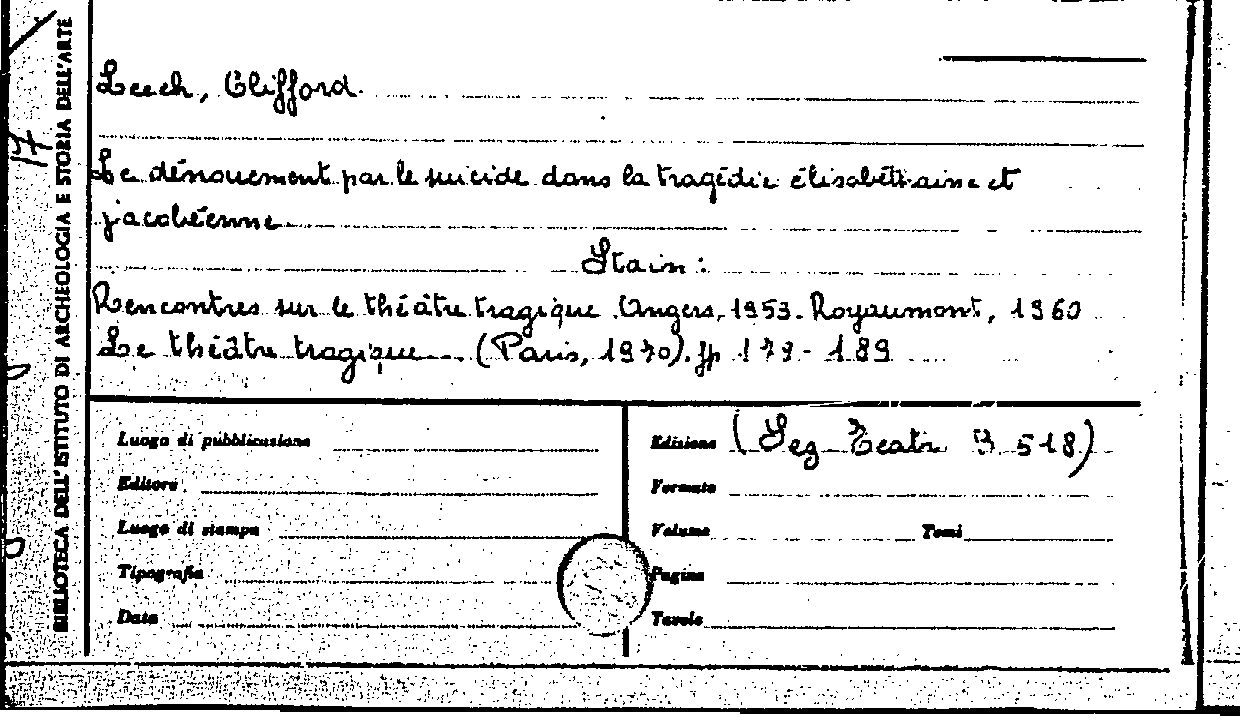 BIBLIOTECA DELL'ISTITUTO DI ARCHEOLOGIA E STORIA DELL'ARTE
17
Leech, Clifford.
Le dénouement par le suicide dans la tragédie élisabéthaine et
jacobéenne.
Sta in:
Rencontres sur le théâtre tragique. Angers, 1953. Royaumont, 1960
Le théâtre tragique... (Paris, 1970). pp 179-189
Luogo di pubblicazione
Edizione (Seg Teatr B 518)
Editore
Formato
Luogo di stampa
Volume Tomi
Tipografia
Pagine
Data
Tavole